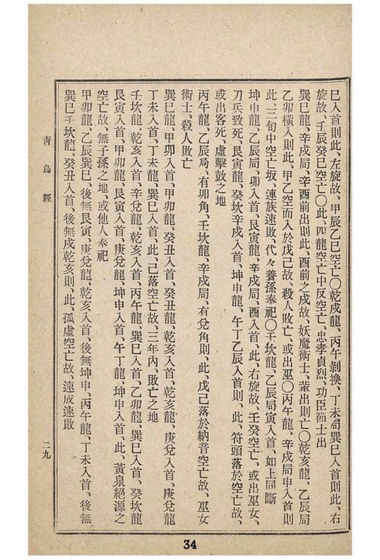 巳入首則此、左旋故、甲辰乙巳空亡〇乾戌龍、丙午剝換、丁未局巽巳入首則此、右
旋故、壬辰癸巳空亡〇此四龍空亡中反空亡、忠孝貞烈、功臣節士出
巽巳龍、辛戌局、辛酉前出則此、酉前之戌故、妖魔術士、輩出則亡〇乾亥龍、乙辰局
乙卯橫入則此、甲乙空而入於戊己故、殺人敗亡、或出巫〇丙午龍、辛戌局申入首
此、三旬中空亡坂、連族速敗、代々養孫奉祀〇壬坎龍、乙辰局寅入首、如上同斷
坤申龍、乙辰局、卯入首、艮寅龍、辛戌局、酉入首、此、右旋故、壬癸空亡、或出巫女、
刀兵致死、艮寅龍、癸坎辛戌入首、坤申龍、午丁乙辰入首則、此、符頭落於空亡故、
或出客死、虛擊鼓之地
丙午龍、乙辰局、有卯角、壬坎龍、辛戌局、有兌角則、此、戊己落於納音空亡故、巫女
術士、殺人敗亡
巽巳龍、甲卯入首、甲卯龍、癸丑入首、癸丑龍、乾亥入首、乾亥龍、庚兌入首、庚兌龍
丁未入首、丁未龍、巽巳入首、此、己落空亡故、三年內、敗亡之地
壬坎龍、乾亥入首、辛兌龍、乾亥入首、丙午龍、巽巳入首、乙卯龍、巽巳入首、癸坎龍
艮寅入首、甲卯龍、艮寅入首、庚兌龍、坤申入首、午丁龍、坤申入首、此、黃泉絕源之
空亡故、無子孫之地、或他人奉祀
甲卯龍、乙辰巽巳、後無艮寅、庚兌龍、乾亥入首、後無坤申、丙午龍、丁未入首、後無
巽巳壬坎龍、癸丑入首、後無戌乾亥則、此、孤虛空亡故、速成速敗
靑烏經
二九
34